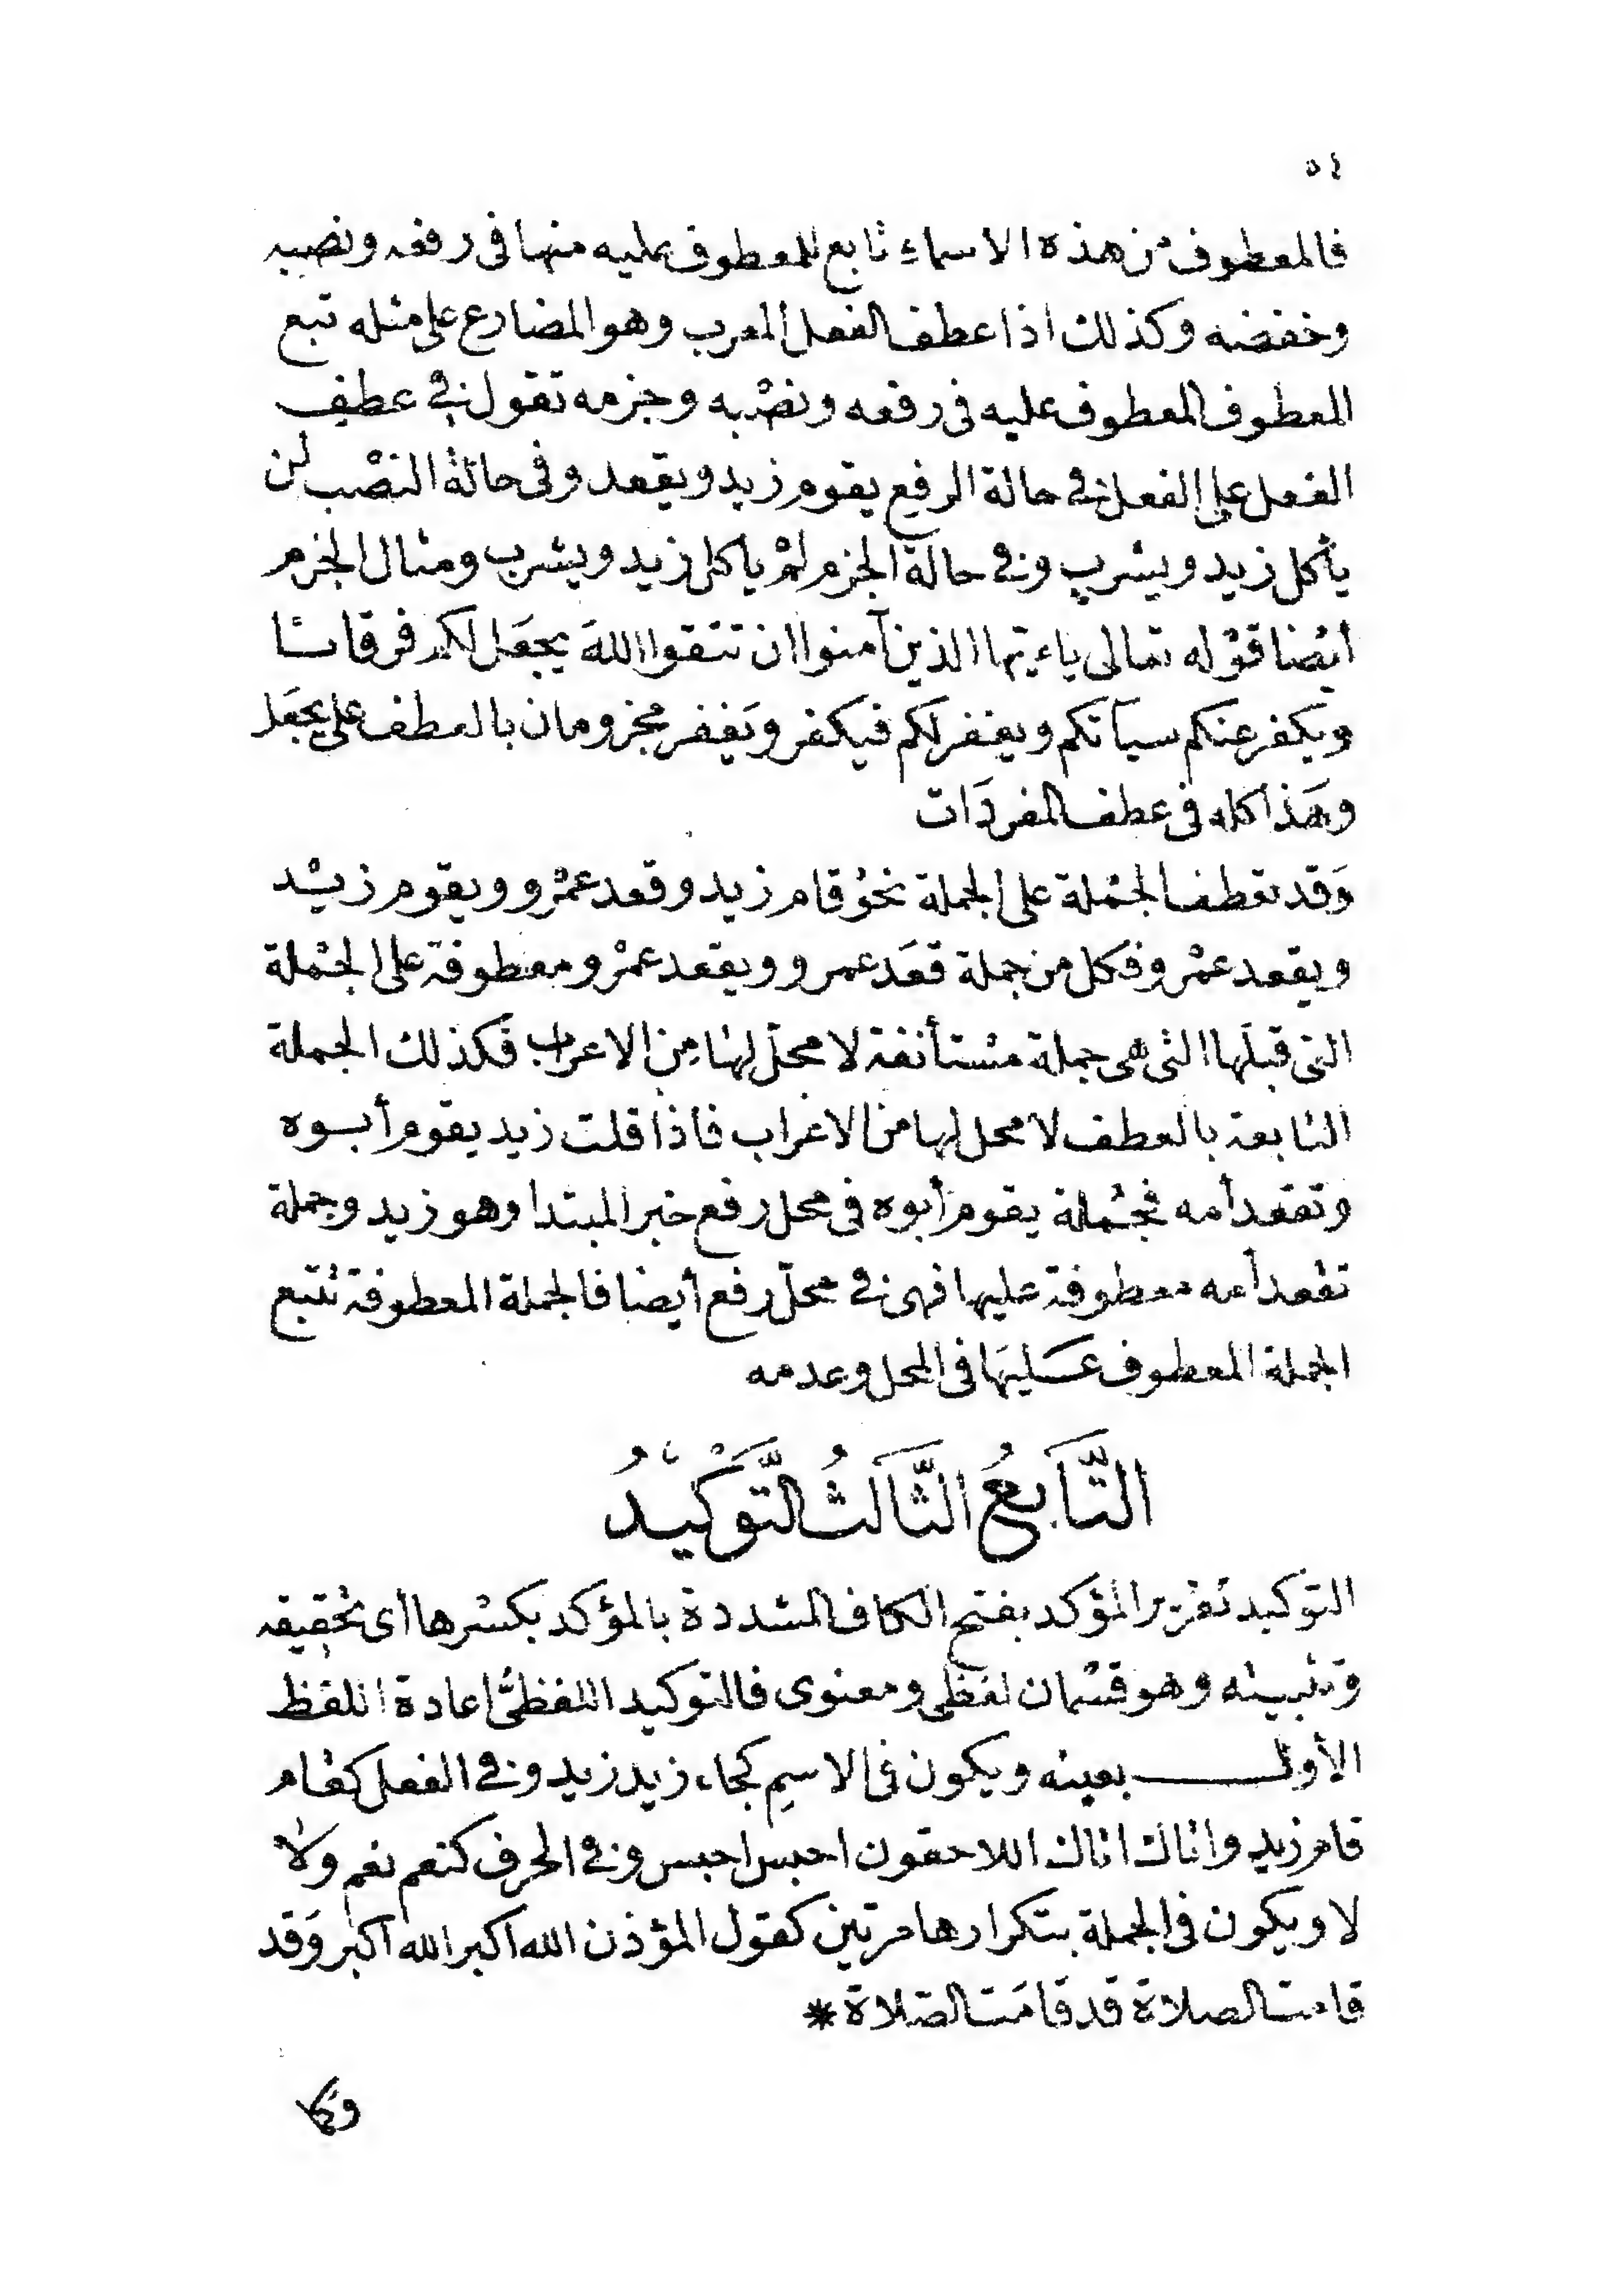 ٥٤
فالمعطوف من هذه الاسماء تابع للمعطوف عليه منها فى رفعه ونصبه
وخفضه وكذلك اذا عطف الفعل المعرب وهو المضارع على مثله تبع
المعطوف المعطوف عليه فى رفعه ونصْبه وجزمه تقول فى عطف
الفعل على الفعل فى حالة الرفع يقوم زيد ويقعد وفى حالة النصْب لن
يأكل زيد ويشرب وفى حالة الجزم لمْ يأكل زيد ويشرب ومثال الجزم
أيْضا قوْله تعالى ياءيّها الذين آمنوا ان تتقوا اللهَ يجعَل لكم فرقانا
ويكفر عنكم سيآتكم ويغفر لكم فيكفر ويَغفر مجزومان بالعطف على يجعَل
وهَذا كله فى عطف المفردَات
وَقد تعْطف الجمْلة على الجملة نحوُ قام زيد وقعد عمْرو ويقوم زيْد
ويقعد عمْرو فكل من جملة قعَد عمرو ويقعد عمْرو معطوفة على الجمْلة
التى قبلَها التى هى جملة مسْتأنفة لا محلّ لها مِن الاعراب فكذلك الجملة
التابعة بالعطف لا محل لها من الاعْراب فاذا قلت زيد يقوم أبوه
وتقعد أمه فجمْلة يقوم أبوه فى محل رفع خبر المبتدا وهو زيد وجملة
تقْعد أمه معطوفة عليها فهى فى محلّ رفع أيضا فالجملة المعطوفة تتبع
الجملة المعطوف عَليهَا فى المحل وعدمه
التَّابعُ الثَّالثُ التَّوْكيدُ
التوْكيد تقْرير المؤكد بفتح الكاف المشددة بالمؤكد بكسْرها أى تحْقيقه
وتثبيته وهو قسْمان لفظى ومعنوى فالتوكيد اللفظىّ اعادة اللفْظ
الأول بعينه ويكون فى الاسمِ كجاء زيد زيد وفى الفعل كقام
قام زيد واتاك اتاك اللاحقون احبس احبس وفى الحرف كنعم نعم ولا
لا ويكون فى الجملة بتكرارها مرتين كقول المؤذن الله اكبر الله اكبر وَقد
قامت الصلاة قد قامَت الصّلاة *
وكما